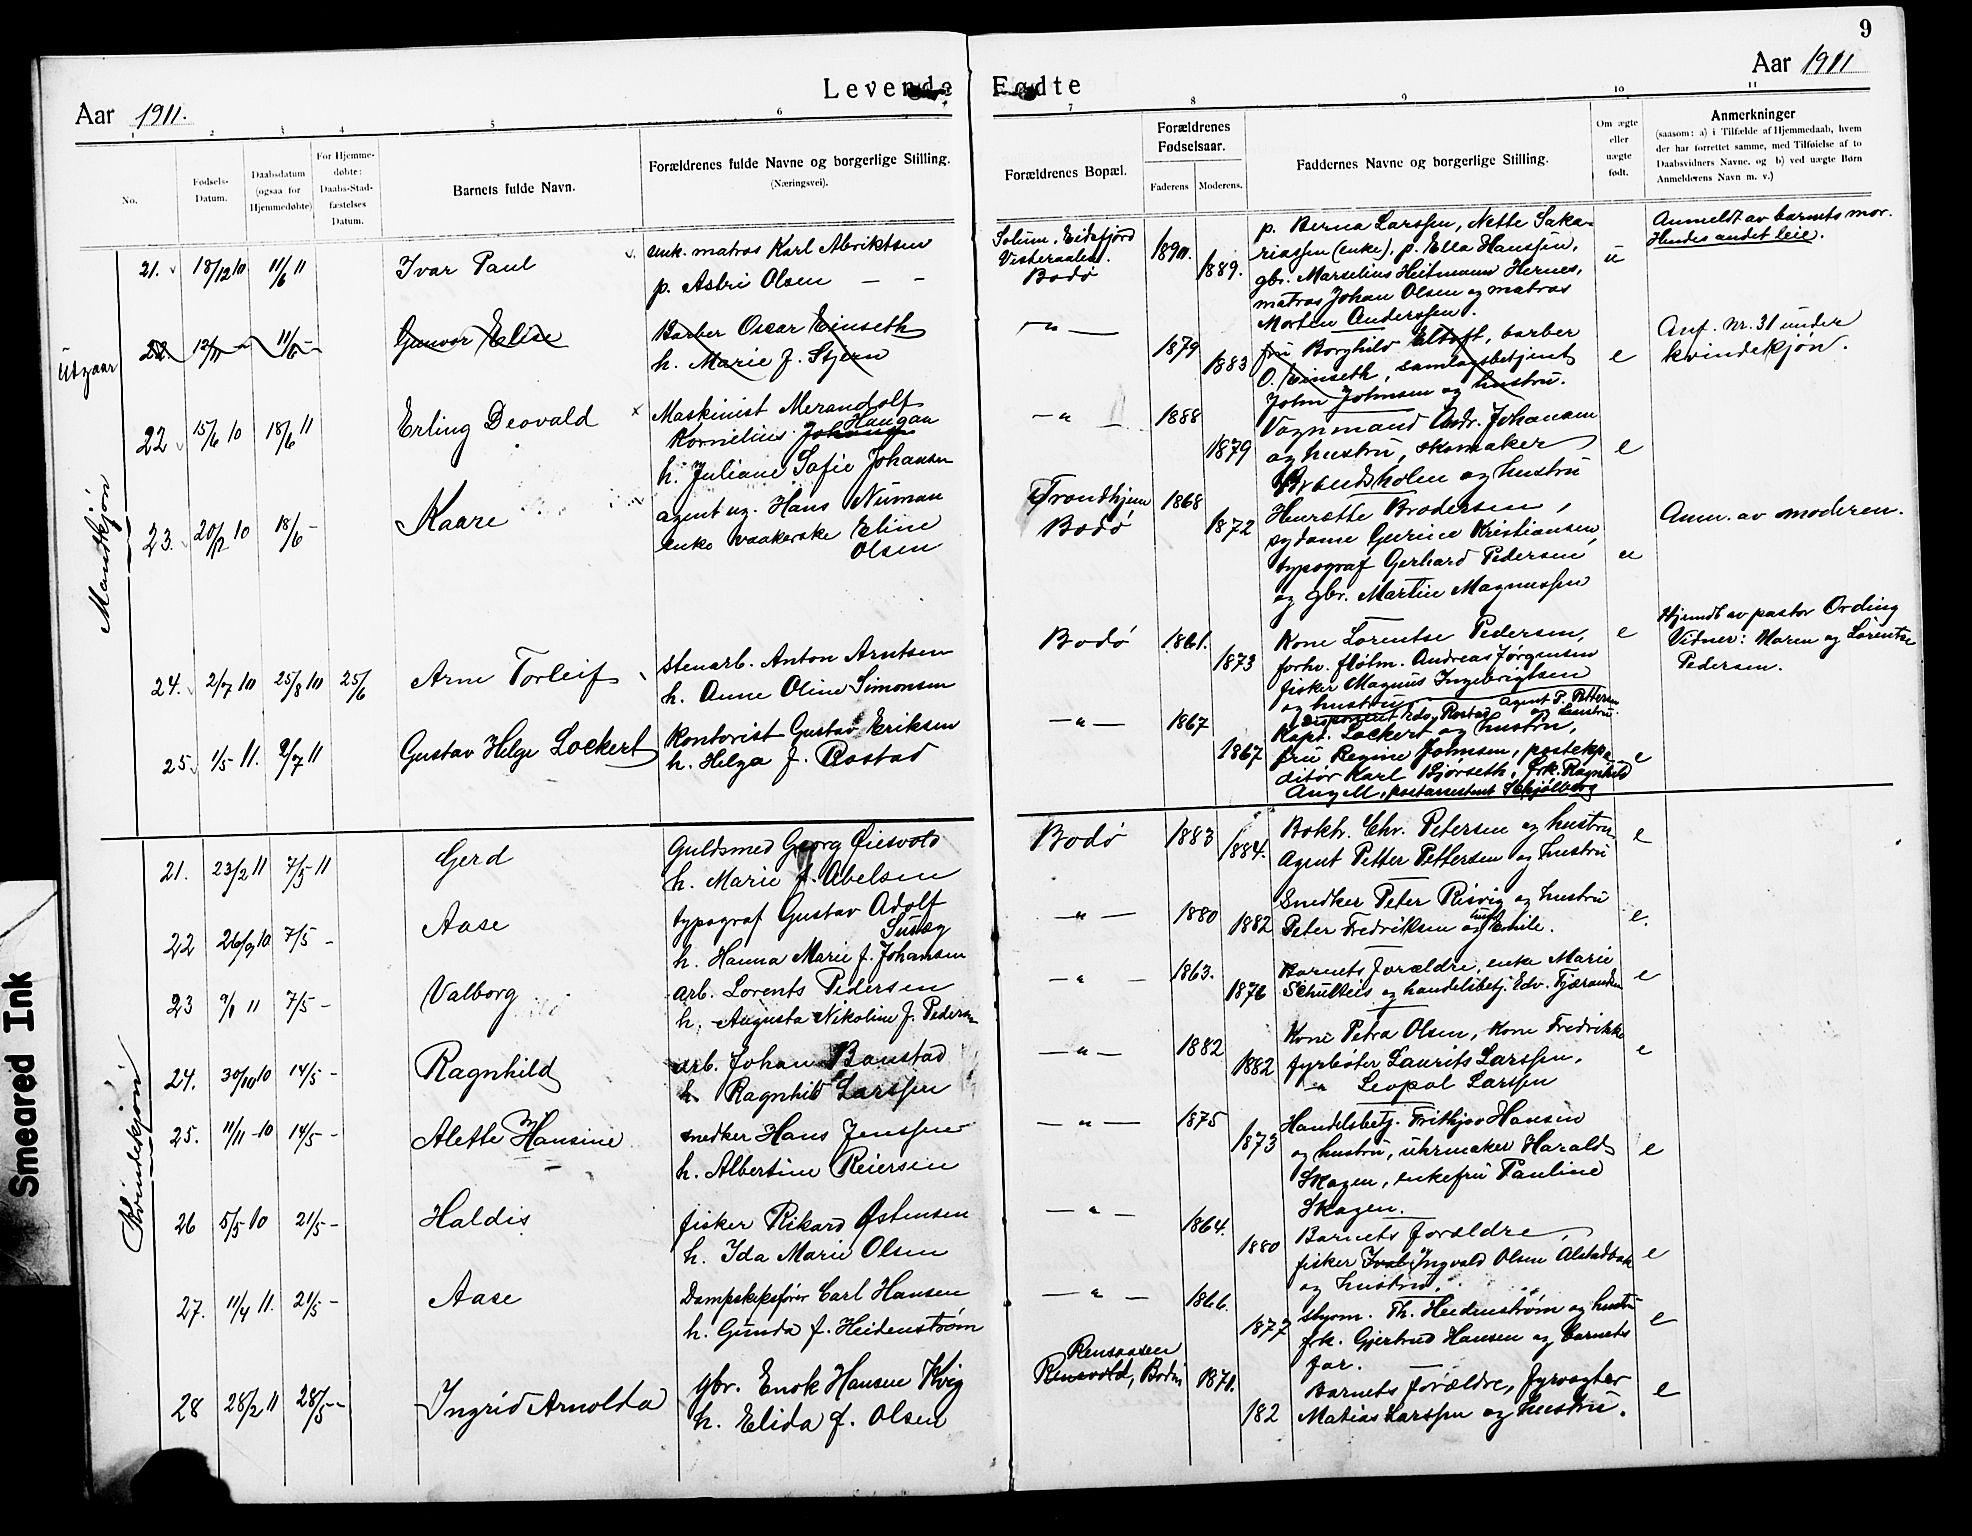 9
Levende Fødte
Aar 1911.
Aar 1911
1 2 3 4 5 6 7 8 9 10 11
No.
Fødsels-
Datum.
Daabsdatum
(ogsaa for
Hjemmedøbte)
For Hjemme-
døbte:
Daabs-Stad-
fæstelses
Datum.
Barnets fulde Navn.
Forældrenes fulde Navne og borgerlige Stilling.
(Næringsvei).
Forældrenes Bopæl.
Forældrenes
Fødselsaar.
Faderens
Moderens.
Faddernes Navne og borgerlige Stilling.
Om ægte
eller
uægte
født.
Anmerkninger
(saasom: a) i Tilfælde af Hjemmedaab, hvem
der har forrettet samme, med Tilføielse af to
Daabsvidners Navne, og b) ved uægte Børn
Anmelderens Navn m. v.)
Mandkjøn
21. 18/12 10 11/6 11
Ivar Paul
unk. matros Karl Abriktsen
p. Astri Olsen — -
Solum, Eidsfjord
Vesteraalen.
Bodø
1890.
1889.
p. Berna Larssen, Nette Saka-
riassen (enke), p. Ella Hanssen,
gbr. Marselius Heitmann Hernes,
matros Johan Olsen og matros
Morten Anderssen.
u
Anmeldt av barnets mor.
Hendes andet leie.
Utgaar
22. 12/11 — 11/6 —
Gunvor Elise
Barber Oscar Einseth
h. Marie f. Stjern
— " —
1879
1883
fru Borghild Eltoft, barber
O. Einseth, samlagsbetjent
John Johnsen og hustru.
e
Anf. nr. 31 under
kvindekjøn.
22 15/6 10 18/6 11
Erling Deovald
Maskinist Merandolf
Kornelius Haugan
h. Juliane Sofie Johansen
— " —
1888
1879
Vognmand Andr. Johansen
og hustru, skomaker
Brandsholm og hustru
e
23. 20/12 10 18/6 -
Kaare
agent ug. Hans Numan
enke vaakerske Eline
Olsen
Trondhjem
Bodø
1868
1872
Henrette Brodersen,
sydame Gurine Kristiansen,
typograf Gerhard Pedersen
og gbr. Martin Magnussen
u
Anm. av moderen.
24. 2/7 10 25/8 10 25/6
Arne Torleif
stenarb. Anton Arntsen
h. Anne Oline Simonsen
Bodø
1861.
1873
Kone Lorentse Pedersen,
forhv. fløtm. Andreas Jørgensen
fisker Magnus Ingebrigtsen
og hustru
e
Hjemdt av pastor Ording
Vidner: Maren og Lorentse
Pedersen.
25. 1/5 11. 2/7 11
Gustav Helge Lockert
Kontorist Gustav Eriksen
h. Helga f. Rostad
— " —
1867
1867
Disponent Edv. Rostad, Agent P. Pettersen
og hustru.
Kapt. Lockert og hustru,
fru Regine Johnsen, postexpe-
ditør Karl Bjørseth, frk. Ragnhild
Angell, postassistent Schjølberg
e
Kvindekjøn
21. 23/2 11 7/5 11
Gerd
Guldsmed Georg Øiesvold
h. Marie f. Abelsen
Bodø
1883
1884.
Bokh. Chr. Petersen og hustru
Agent Petter Pettersen og hustru
e
22 26/9 10 7/5 -
Aase
typograf Gustav Adolf
h. Hanna Marie f. Johansen
— " —
1880
1882
Snedker Peter Risvig og hustru
Peter Fredriksen og
e.
23 9/1 11 7/5 -
Valborg
arb. Lorents Pedersen
h. Augusta Nikoline f. Pedersen
— " —
1863.
1876
Barnets forældre, enke Marie
Schulteis og handelsbetj. Edv. Fjæranden
e
24. 30/10 10 14/5 -
Ragnhild
arb. Johan Banstad
h. Ragnhild Larssen
— " —
1882
1882
Kone Petra Olsen, kone Fredrikke
fyrbøter Laurits Larssen,
— " — Leopol Larssen
e
25. 11/11 - 10 14/5 -
Alette M Hansine
snedker Hans Jenssen
h. Albertine Reiersen
— " —
1875
1873
Handelsbetj. Frithjov Hansen
og hustru, uhrmaker Harald
Skagen, enkefru Pauline
Skagen.
e
26 5/5 10 21/5 -
Haldis
fisker Rikard Østensen
h. Ida Marie Olsen
— " —
1864.
1880
Barnets forældre,
fisker Ingvald Olsen Alstadbak
og hustru.
e
27. 11/4 11. 21/5 -
Aase
Dampskipsfører Carl Hansen
h. Gunda f. Heidenstrøm
— " —
1866.
1877
styrm. Th. Heidenstrøm og hustru
frk. Gjertrud Hansen og barnets
far.
e
28 28/2 11 28/5 -
Ingrid Arnolda
gbr. Enok Hansen Kvig
h. Elida f. Olsen
Rensaasen
Rensvold, Bodin
1870.
182
Barnets forældre, fyrvogter
Matias Larssen og hustru.
e
Smeared Ink